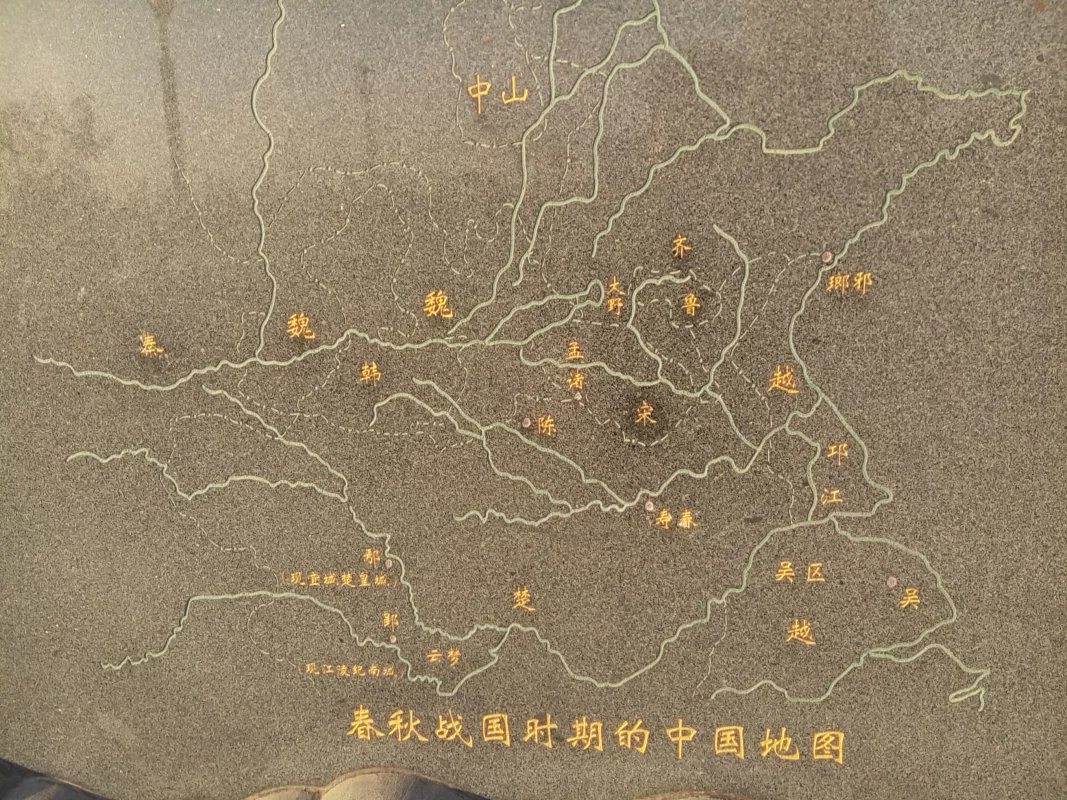 中山
齐
瑯邪
大野
鲁
魏
魏
秦
韩
孟渚
越
宋
陈
邗江
寿春
鄢
(现宜城楚皇城)
吴区
吴
楚
郢
越
云梦
现江凌纪南城)
春秋战国时期的中国地图